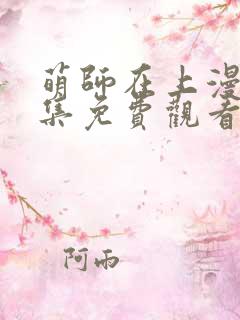 萌師在上漫
集免費觀看
阿雨